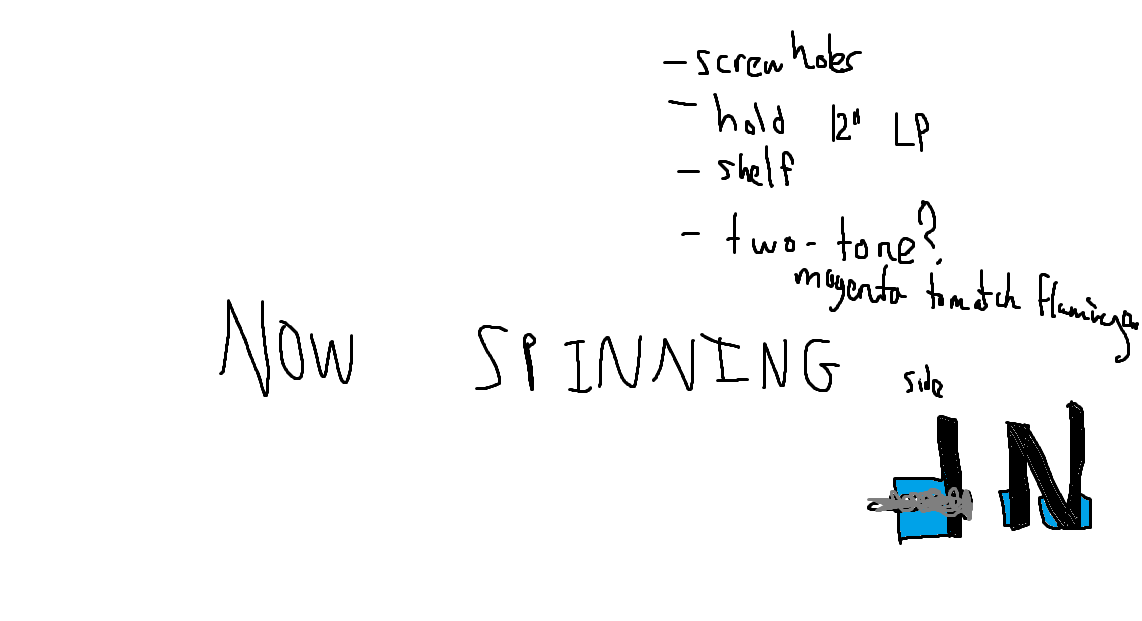 - screw holes
- hold 12" LP
- shelf
- two-tone?
magenta to match flamingo
NOW SPINNING
side
N